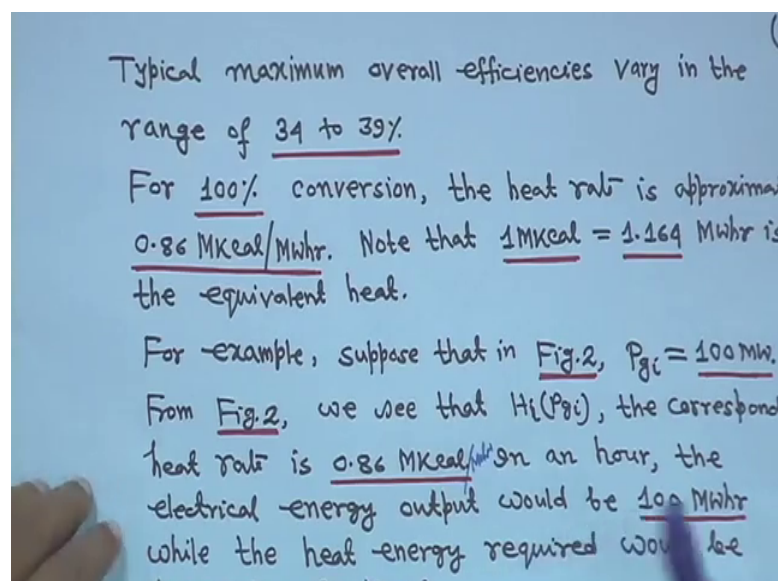 Typical maximum overall efficiencies vary in the
range of 34 to 39%
For 100% conversion, the heat rate is approxima
0.86 MKcal/Mwhr. Note that 1MKcal = 1.164 Mwhr is
the equivalent heat.
For example, suppose that in Fig.2, Pgi = 100 MW.
From Fig.2, we see that Hi(Pgi), the correspond
heat rate is 0.86 MKcal/ In an hour, the
electrical energy output would be 100 Mwhr
while the heat energy required would be